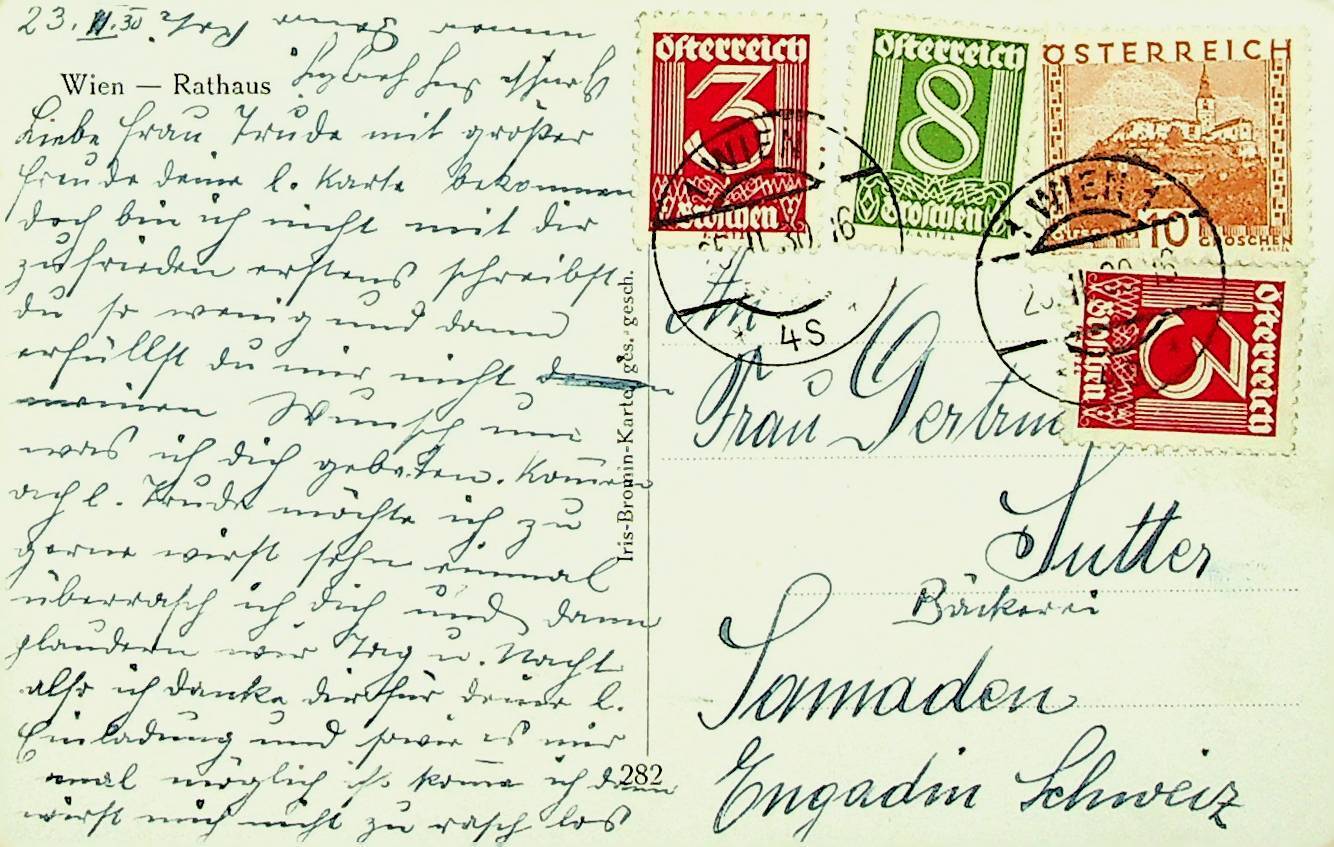 23. II. 30
Wien — Rathaus
Liebe Frau Trude mit großer
Freude deine l. Karte bekommen
doch bin ich nicht mit dir
zufrieden erstens schreibst
du so wenig und dann
erfüllst du mir nicht
meinen Wunsch um
was ich dich gebeten. Kommen
ach l. Trude möchte ich zu
gerne wirst sehn einmal
überrasch ich dich und dann
plaudern wir Tag u. Nacht
also ich danke dir für deine l.
Einladung und sowie es mir
mal möglich ist komme ich dann
wirst mich nicht zu rasch los
Iris-Bromin-Karte, ges. gesch.
282
Österreich
3
Groschen
Österreich
8
Groschen
ÖSTERREICH
10
GROSCHEN
Österreich
3
Groschen
WIEN
30 16
4S
1 WIEN 1
An
Frau Gertrud
Sutter
Bäckerei
Samaden
Engadin Schweiz